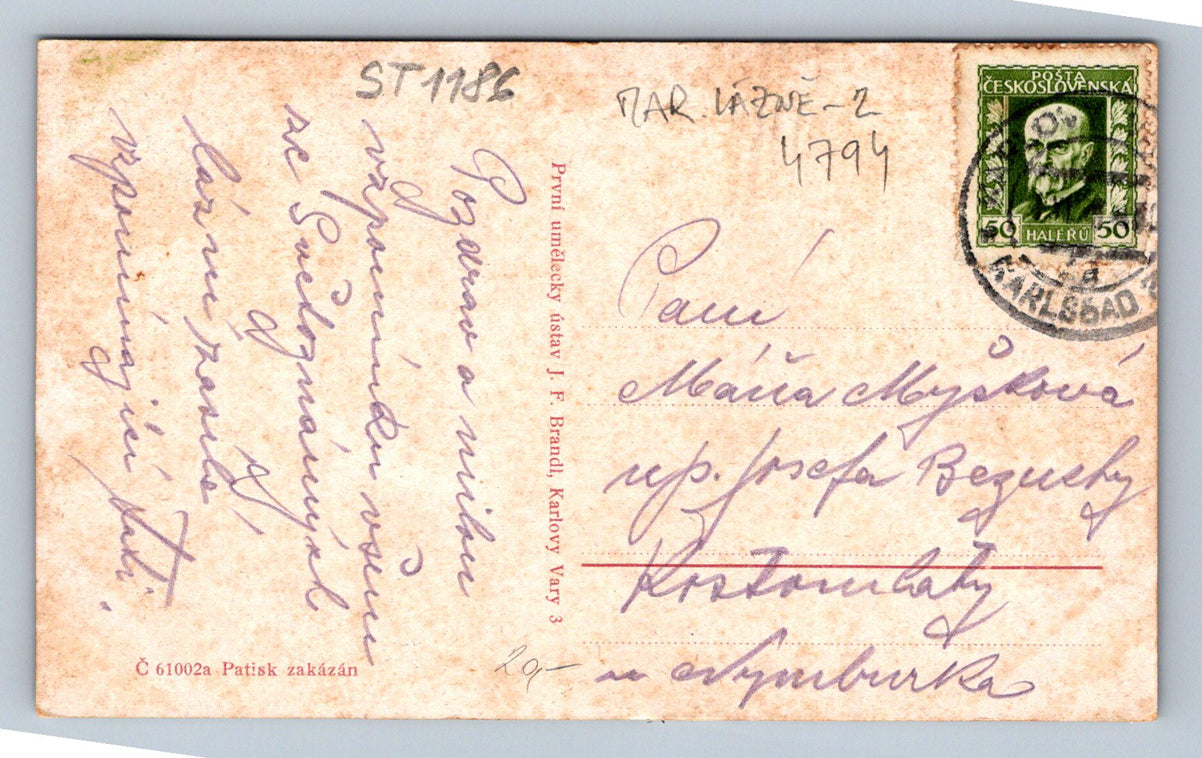 ST 1186
MAR. LÁZNĚ-2
4794
POŠTA
ČESKOSLOVENSKÁ
50 HALÉŘŮ 50
KARLSBAD
Pozdrav a milou
vzpomínku všem
ze
lázní zasílá
vzpomínající
První umělecký ústav J. F. Brandl, Karlovy Vary 3
Paní
Máňa Myšková
up. Josefa Bezuchy
Kostomlaty
u Nymburka
Č 61002a Patisk zakázán
20,-